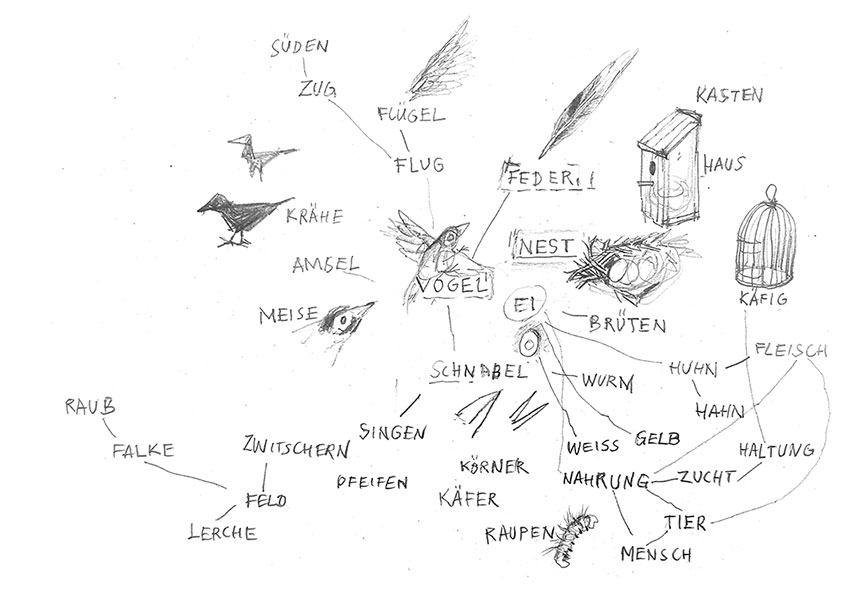 SÜDEN
ZUG
FLÜGEL
FLUG
FEDER
KASTEN
HAUS
KRÄHE
AMSEL
MEISE
VOGEL
NEST
EI
BRÜTEN
KÄFIG
SCHNABEL
WURM
HUHN
FLEISCH
HAHN
RAUB
FALKE
ZWITSCHERN
SINGEN
PFEIFEN
KÖRNER
KÄFER
RAUPEN
WEISS
GELB
HALTUNG
NAHRUNG
ZUCHT
FELD
LERCHE
TIER
MENSCH